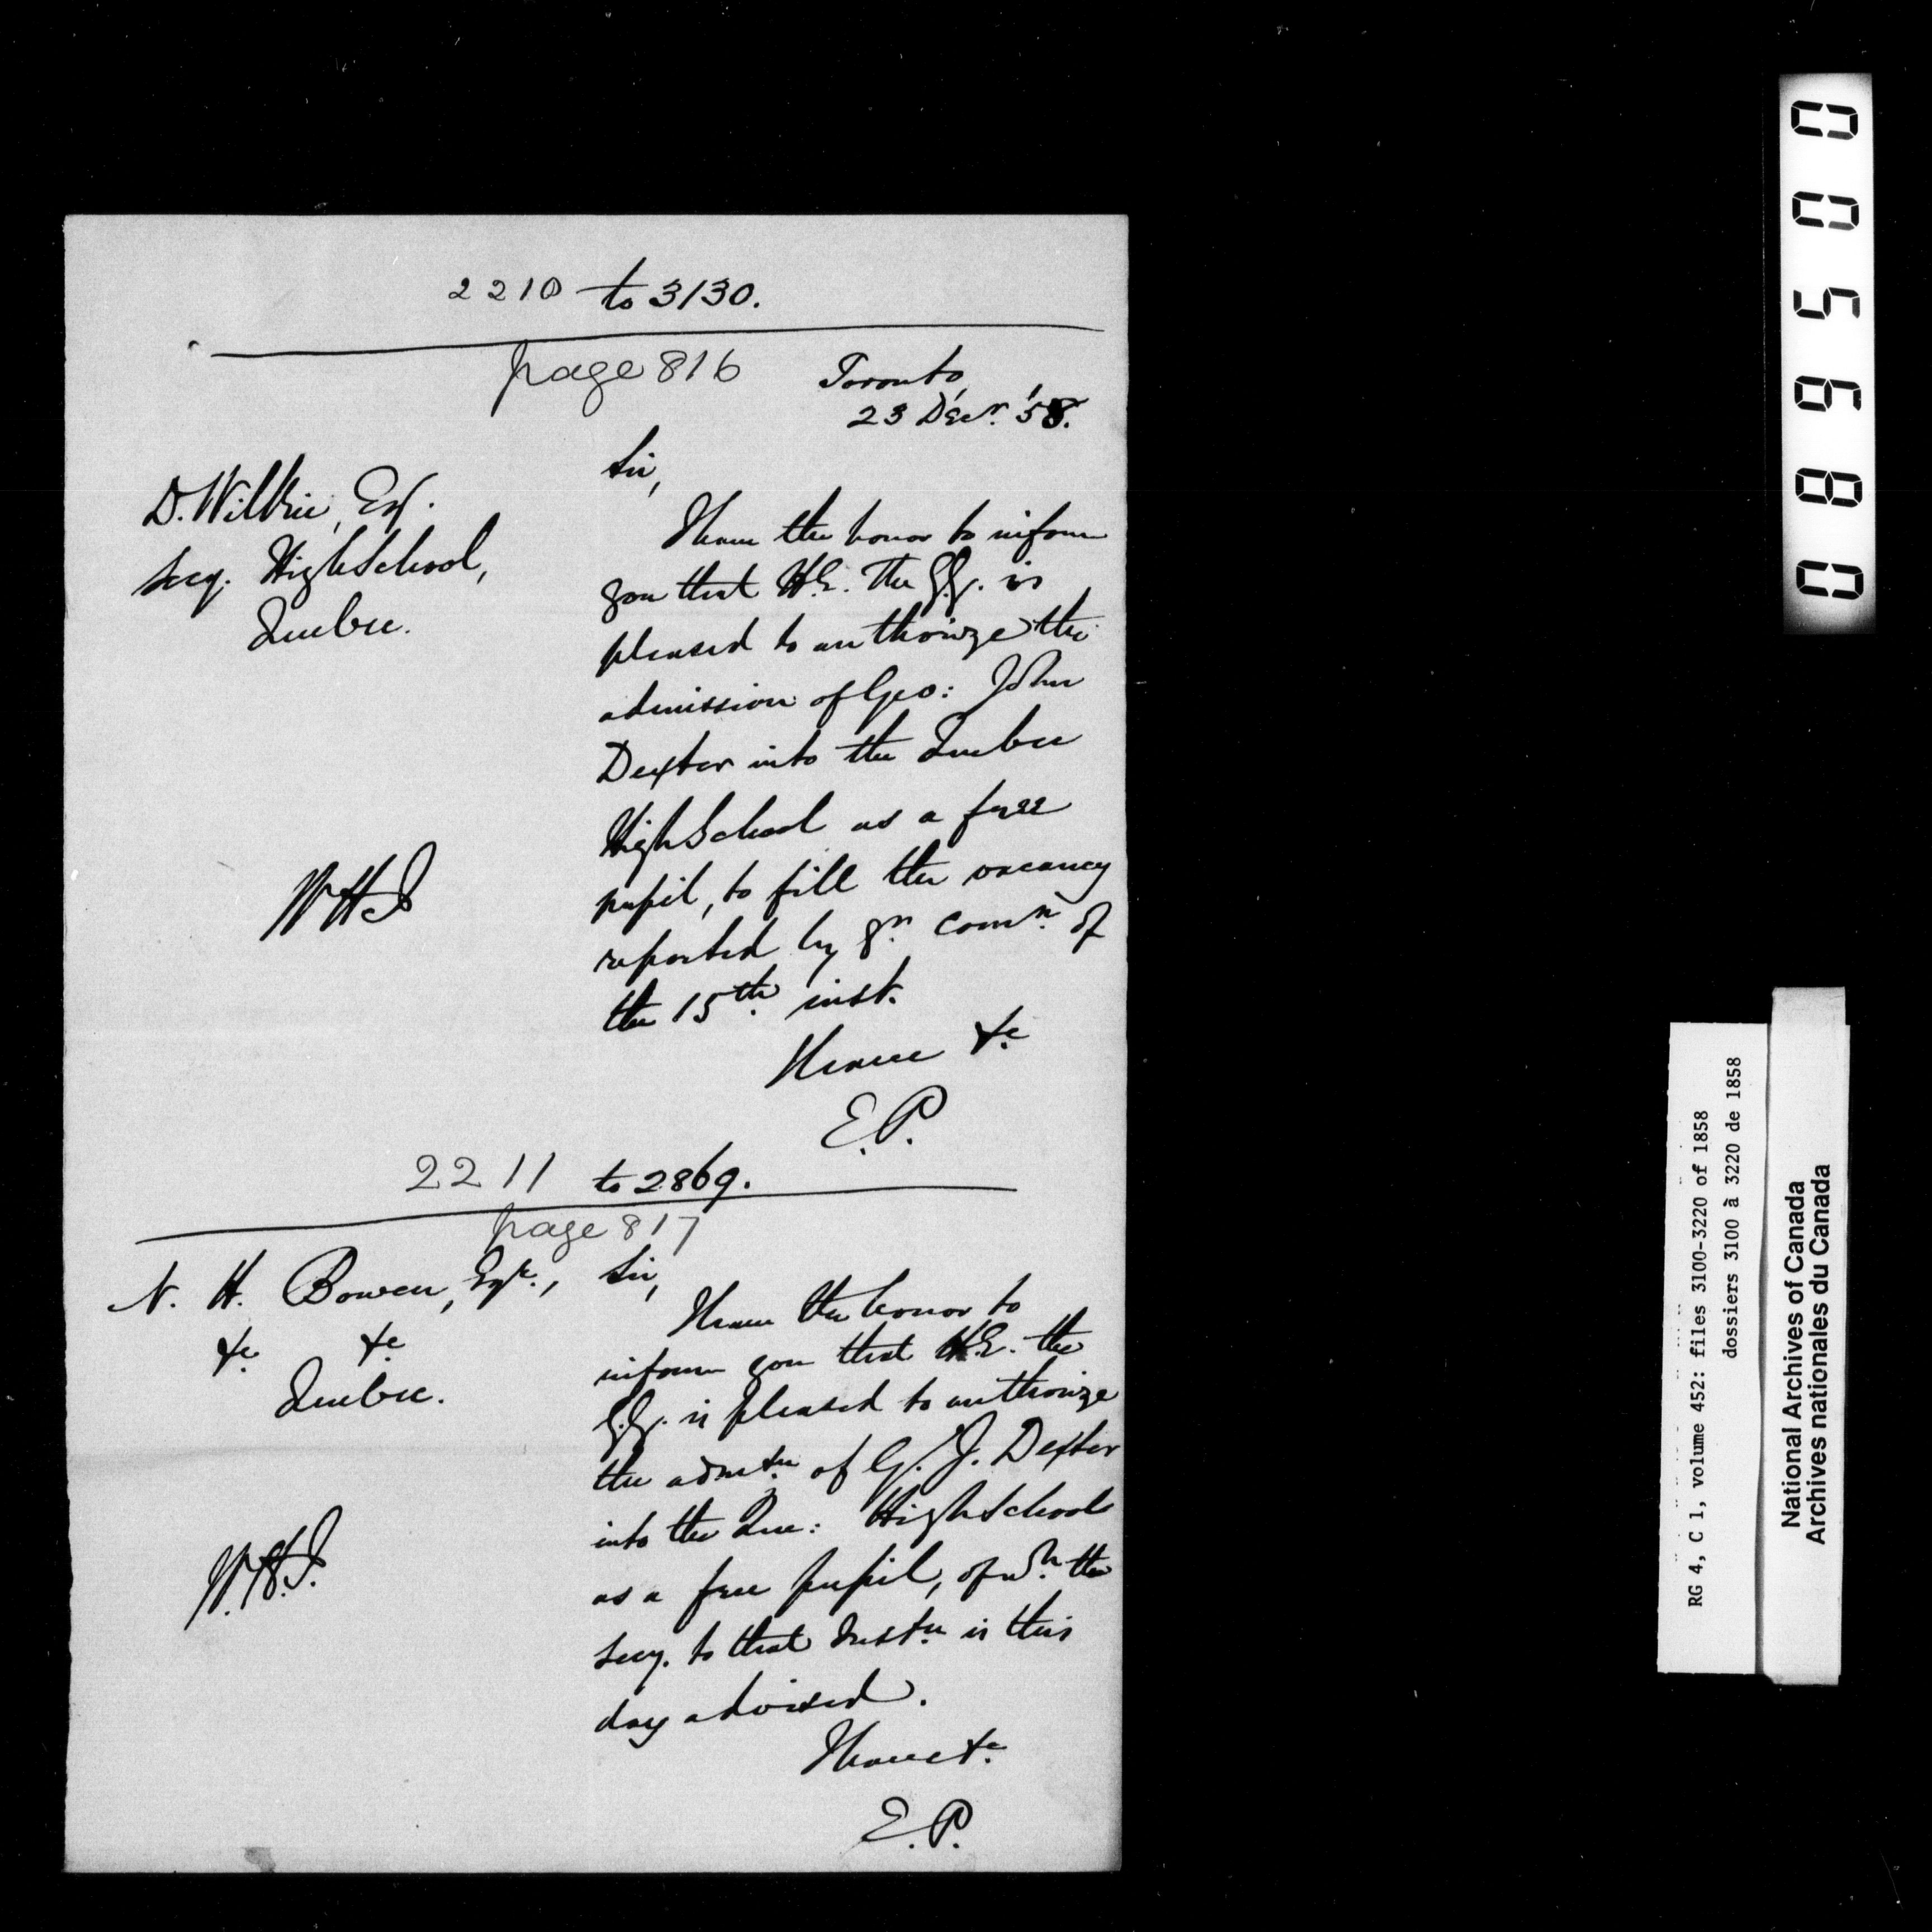 2210 to 3130.
page 816
Toronto,
23 Decr. '58.
D. Wilkie, Esq.
Secy. High School,
Quebec.
Sir,
I have the honor to inform
you that H.E. The G.G. is
pleased to authorize the
admission of Geo: John
Dexter into the Quebec
High School as a free
pupil, to fill the vacancy
reported by yr. comn. of
the 15th. inst.
I have &c.
E.P.
2211 to 2869.
page 817
N. H. Bowen, Esqre.,
&c &c
Quebec.
Sir,
I have the honor to
inform you that H.E. the
G.G. is pleased to authorize
the admtn. of G. J. Dexter
into the Que: High School
as a free pupil, of wh. the
Secy. to that Instn. is this
day advised.
I have &c.
E.P.
0 0 5 9 8 0
RG 4, C 1, volume 452: files 3100-3220 of 1858
dossiers 3100 à 3220 de 1858
National Archives of Canada
Archives nationales du Canada